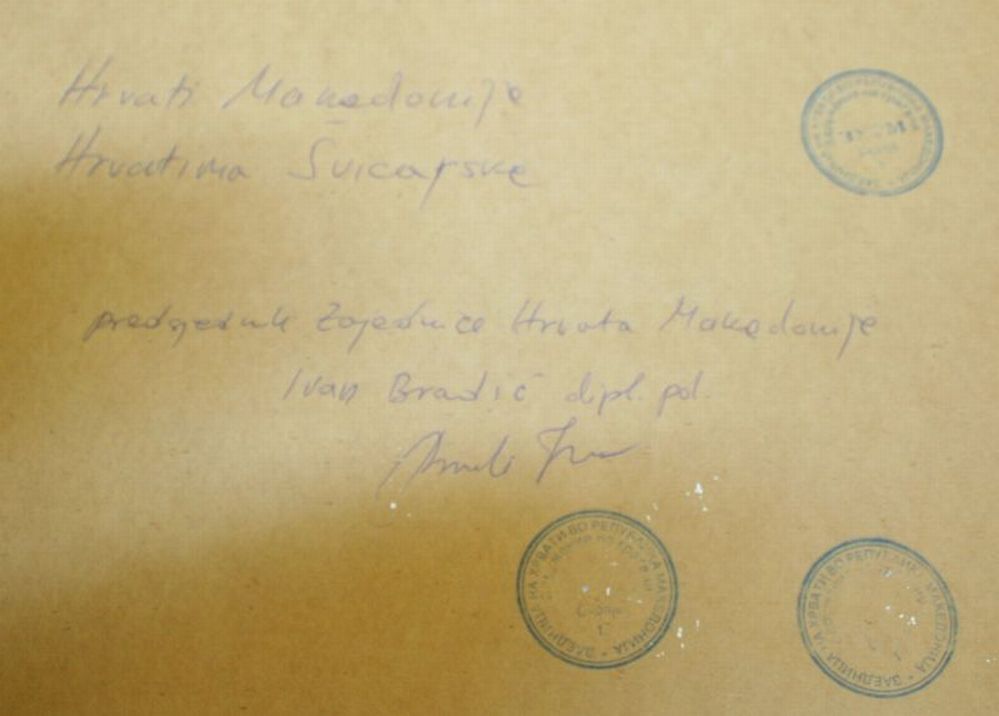 Hrvati Makedonije
Hrvatima Švicarske
predsjednik Zajednice Hrvata Makedonije
Ivan Bradić dipl. pol.
ЗАЕДНИЦА НА ХРВАТИ ВО РЕПУБЛИКА МАКЕДОНИЈА
ЗАЕДНИЦА НА ХРВАТИ ВО РЕПУБЛИКА МАКЕДОНИЈА